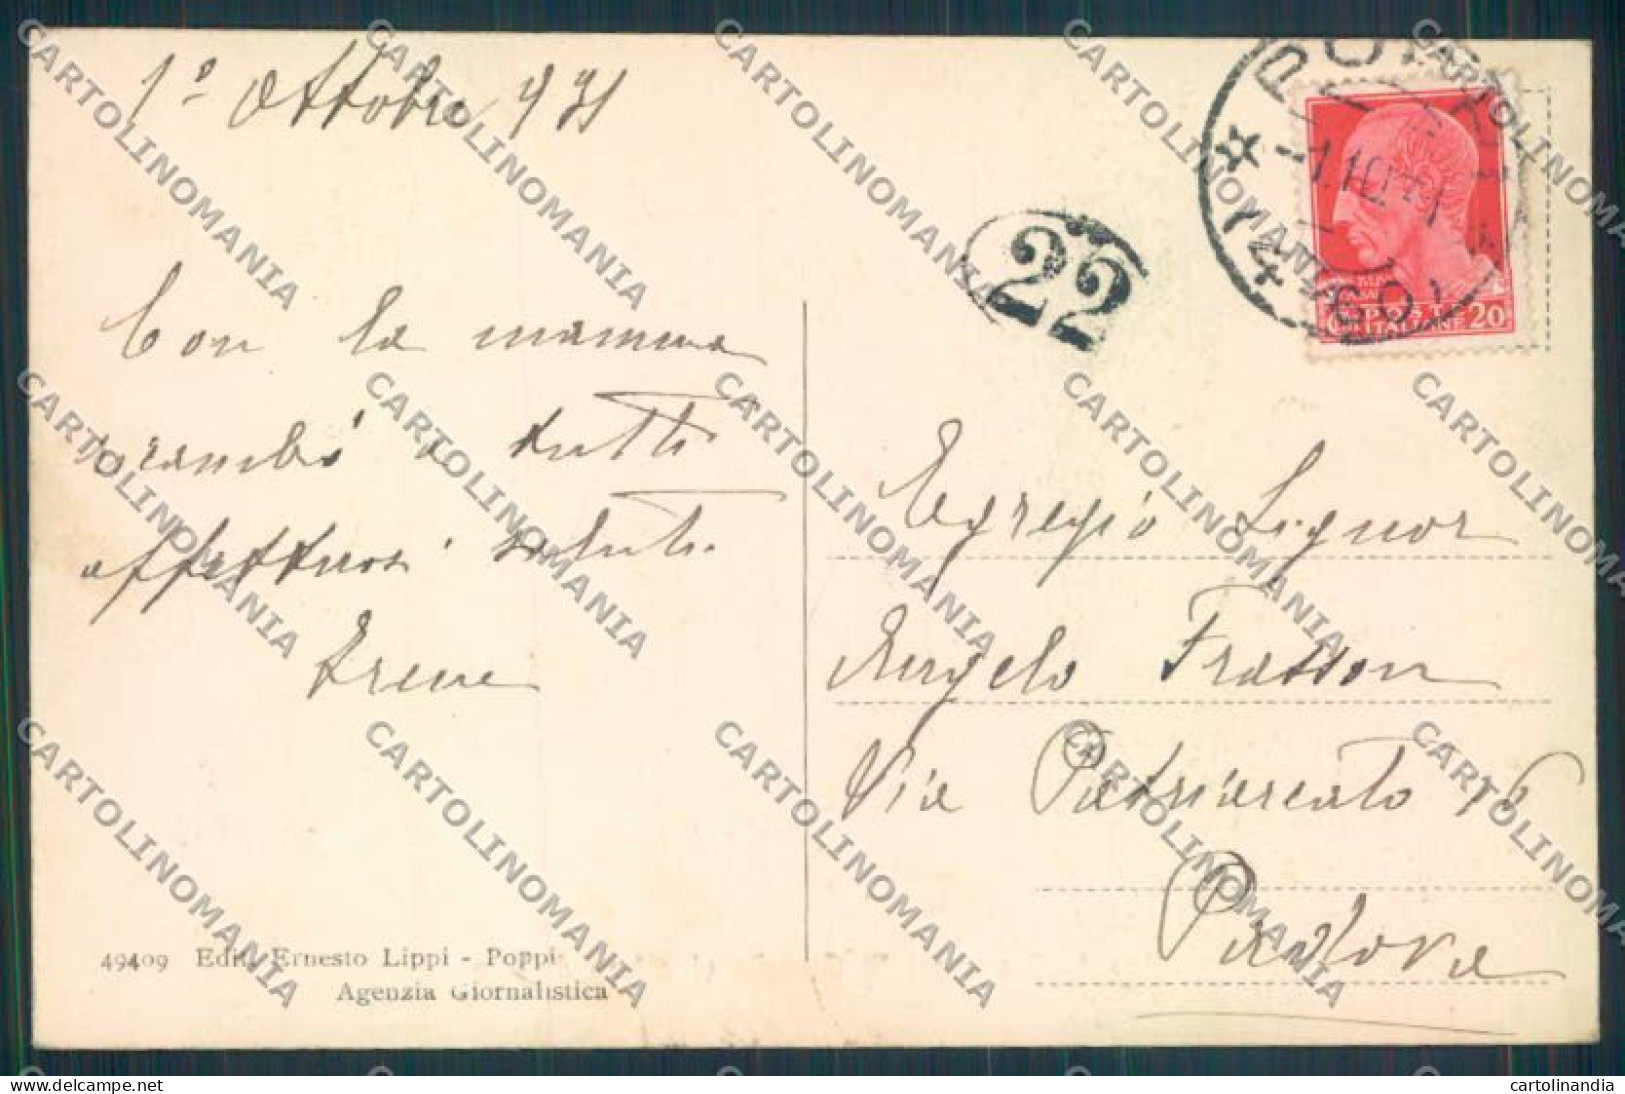 1º Ottobre 931
Con la mamma
ricambio a tutti
affettuosi saluti.
Irene
49409 Edit. Ernesto Lippi - Poppi
Agenzia Giornalistica
22
POPPI
1.10.31
* 14-60
POSTE
ITALIANE 20
Egregio Signor
Angelo Frasson
Via Patriarcato 16
Padova
CARTOLINOMANIA
cartolinomania.com
cartolinandia